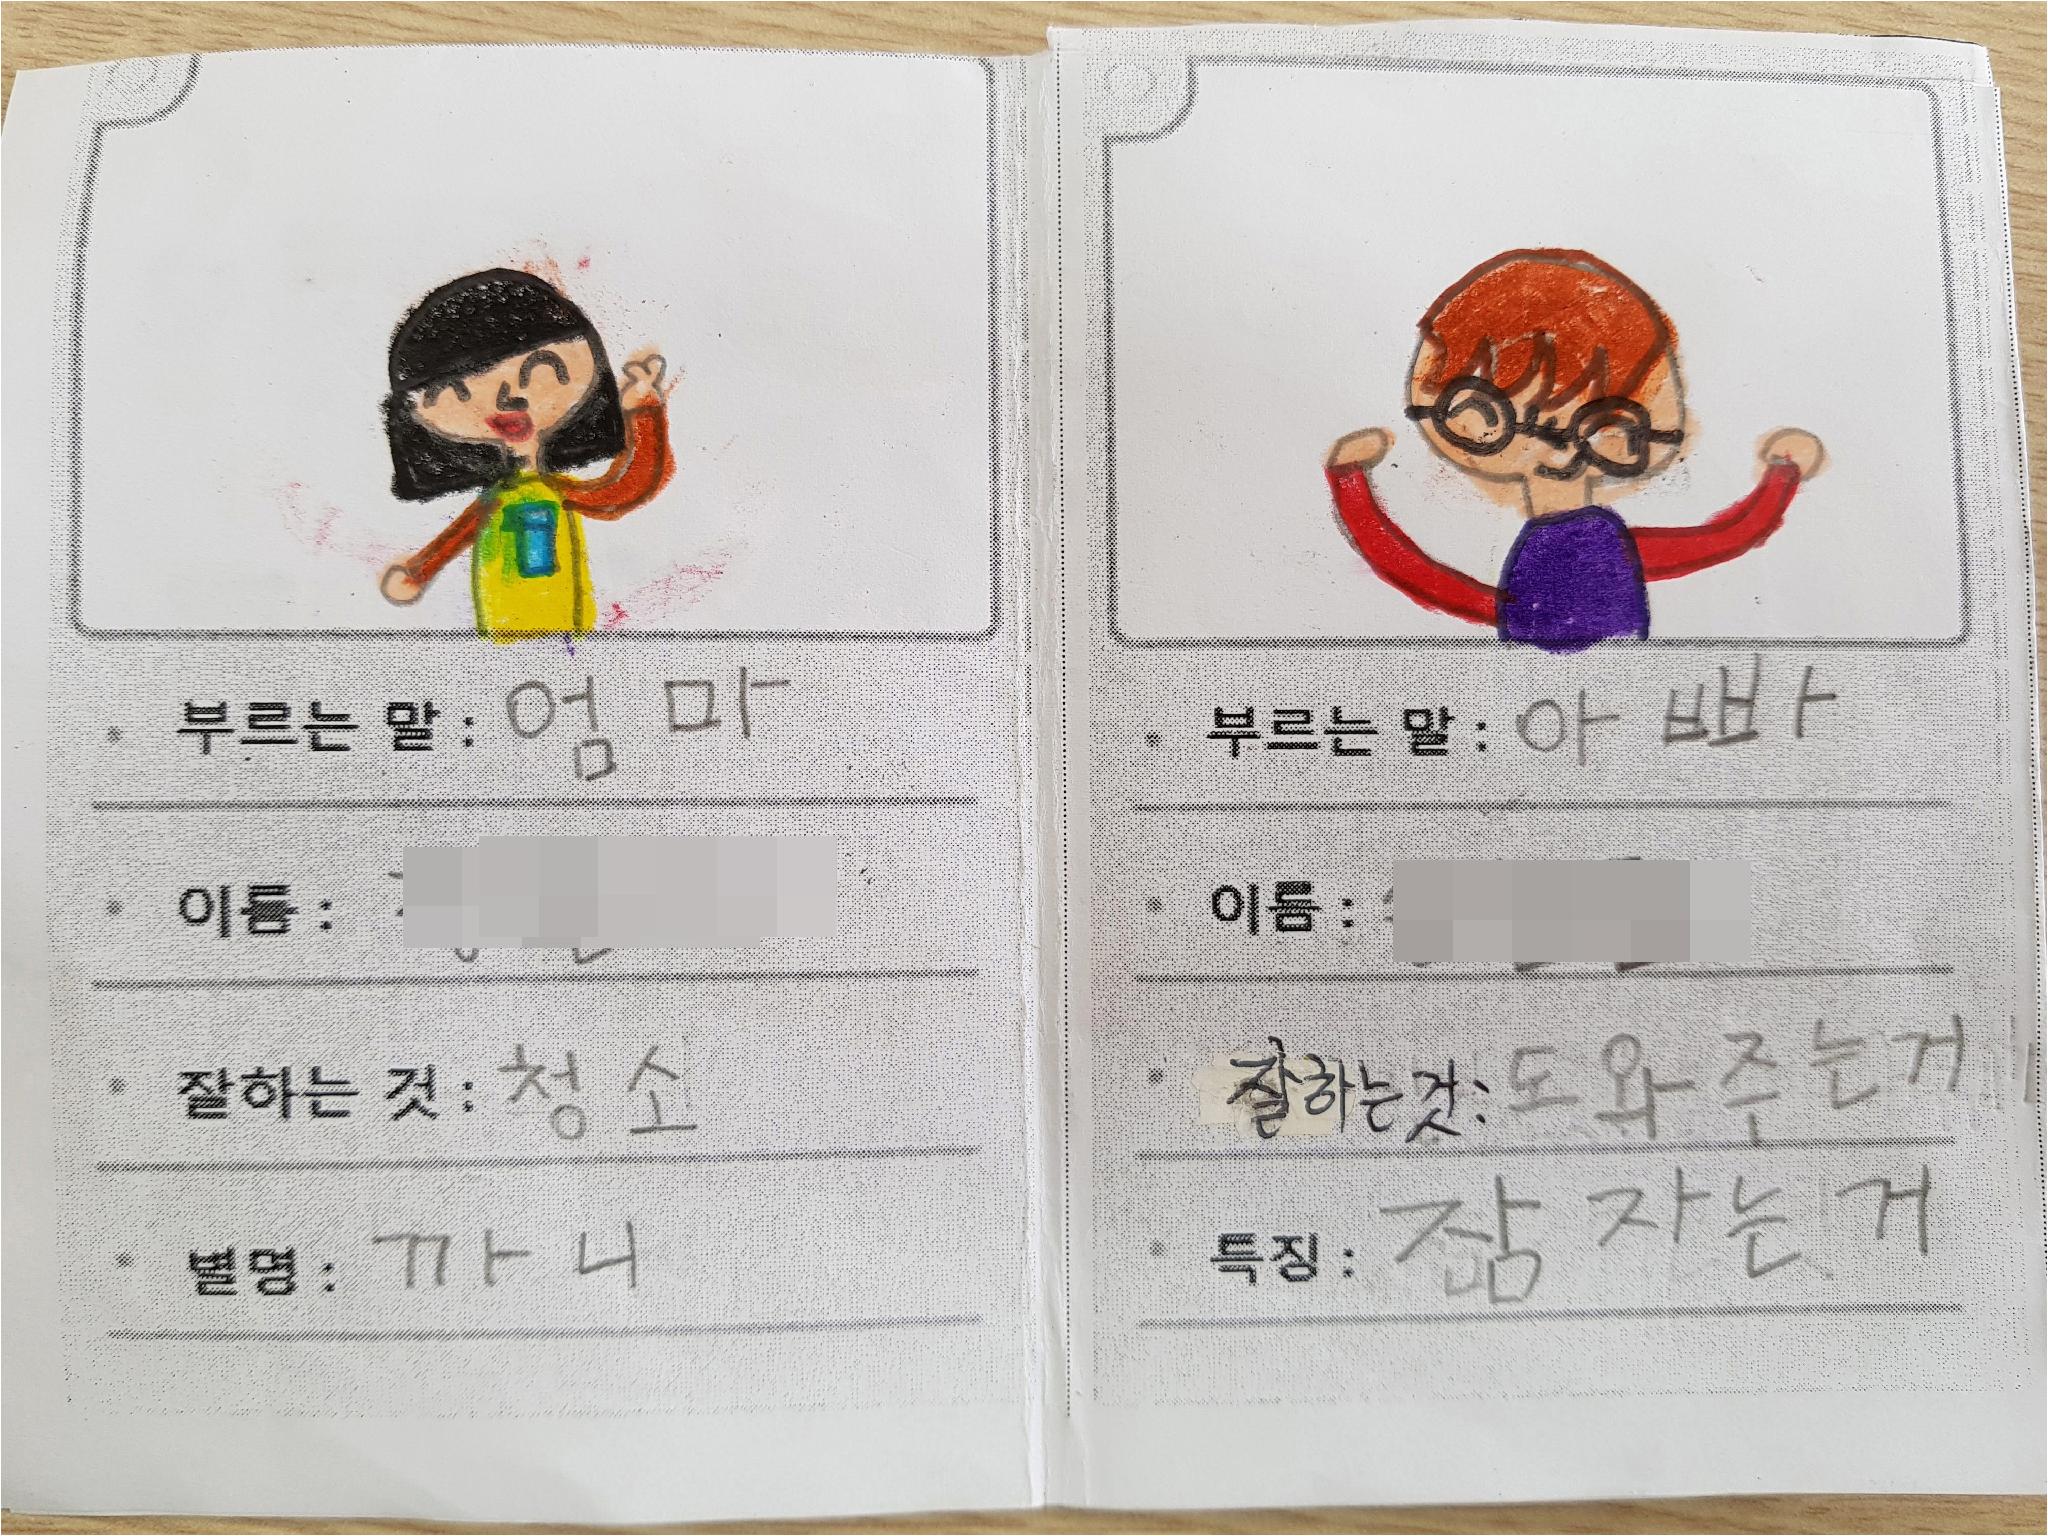 부르는 말 : 엄마
이름 :
잘하는 것 : 청소
별명 : 까니
부르는 말 : 아빠
이름 :
잘하는것: 도와주는거
특징 : 잠자는거